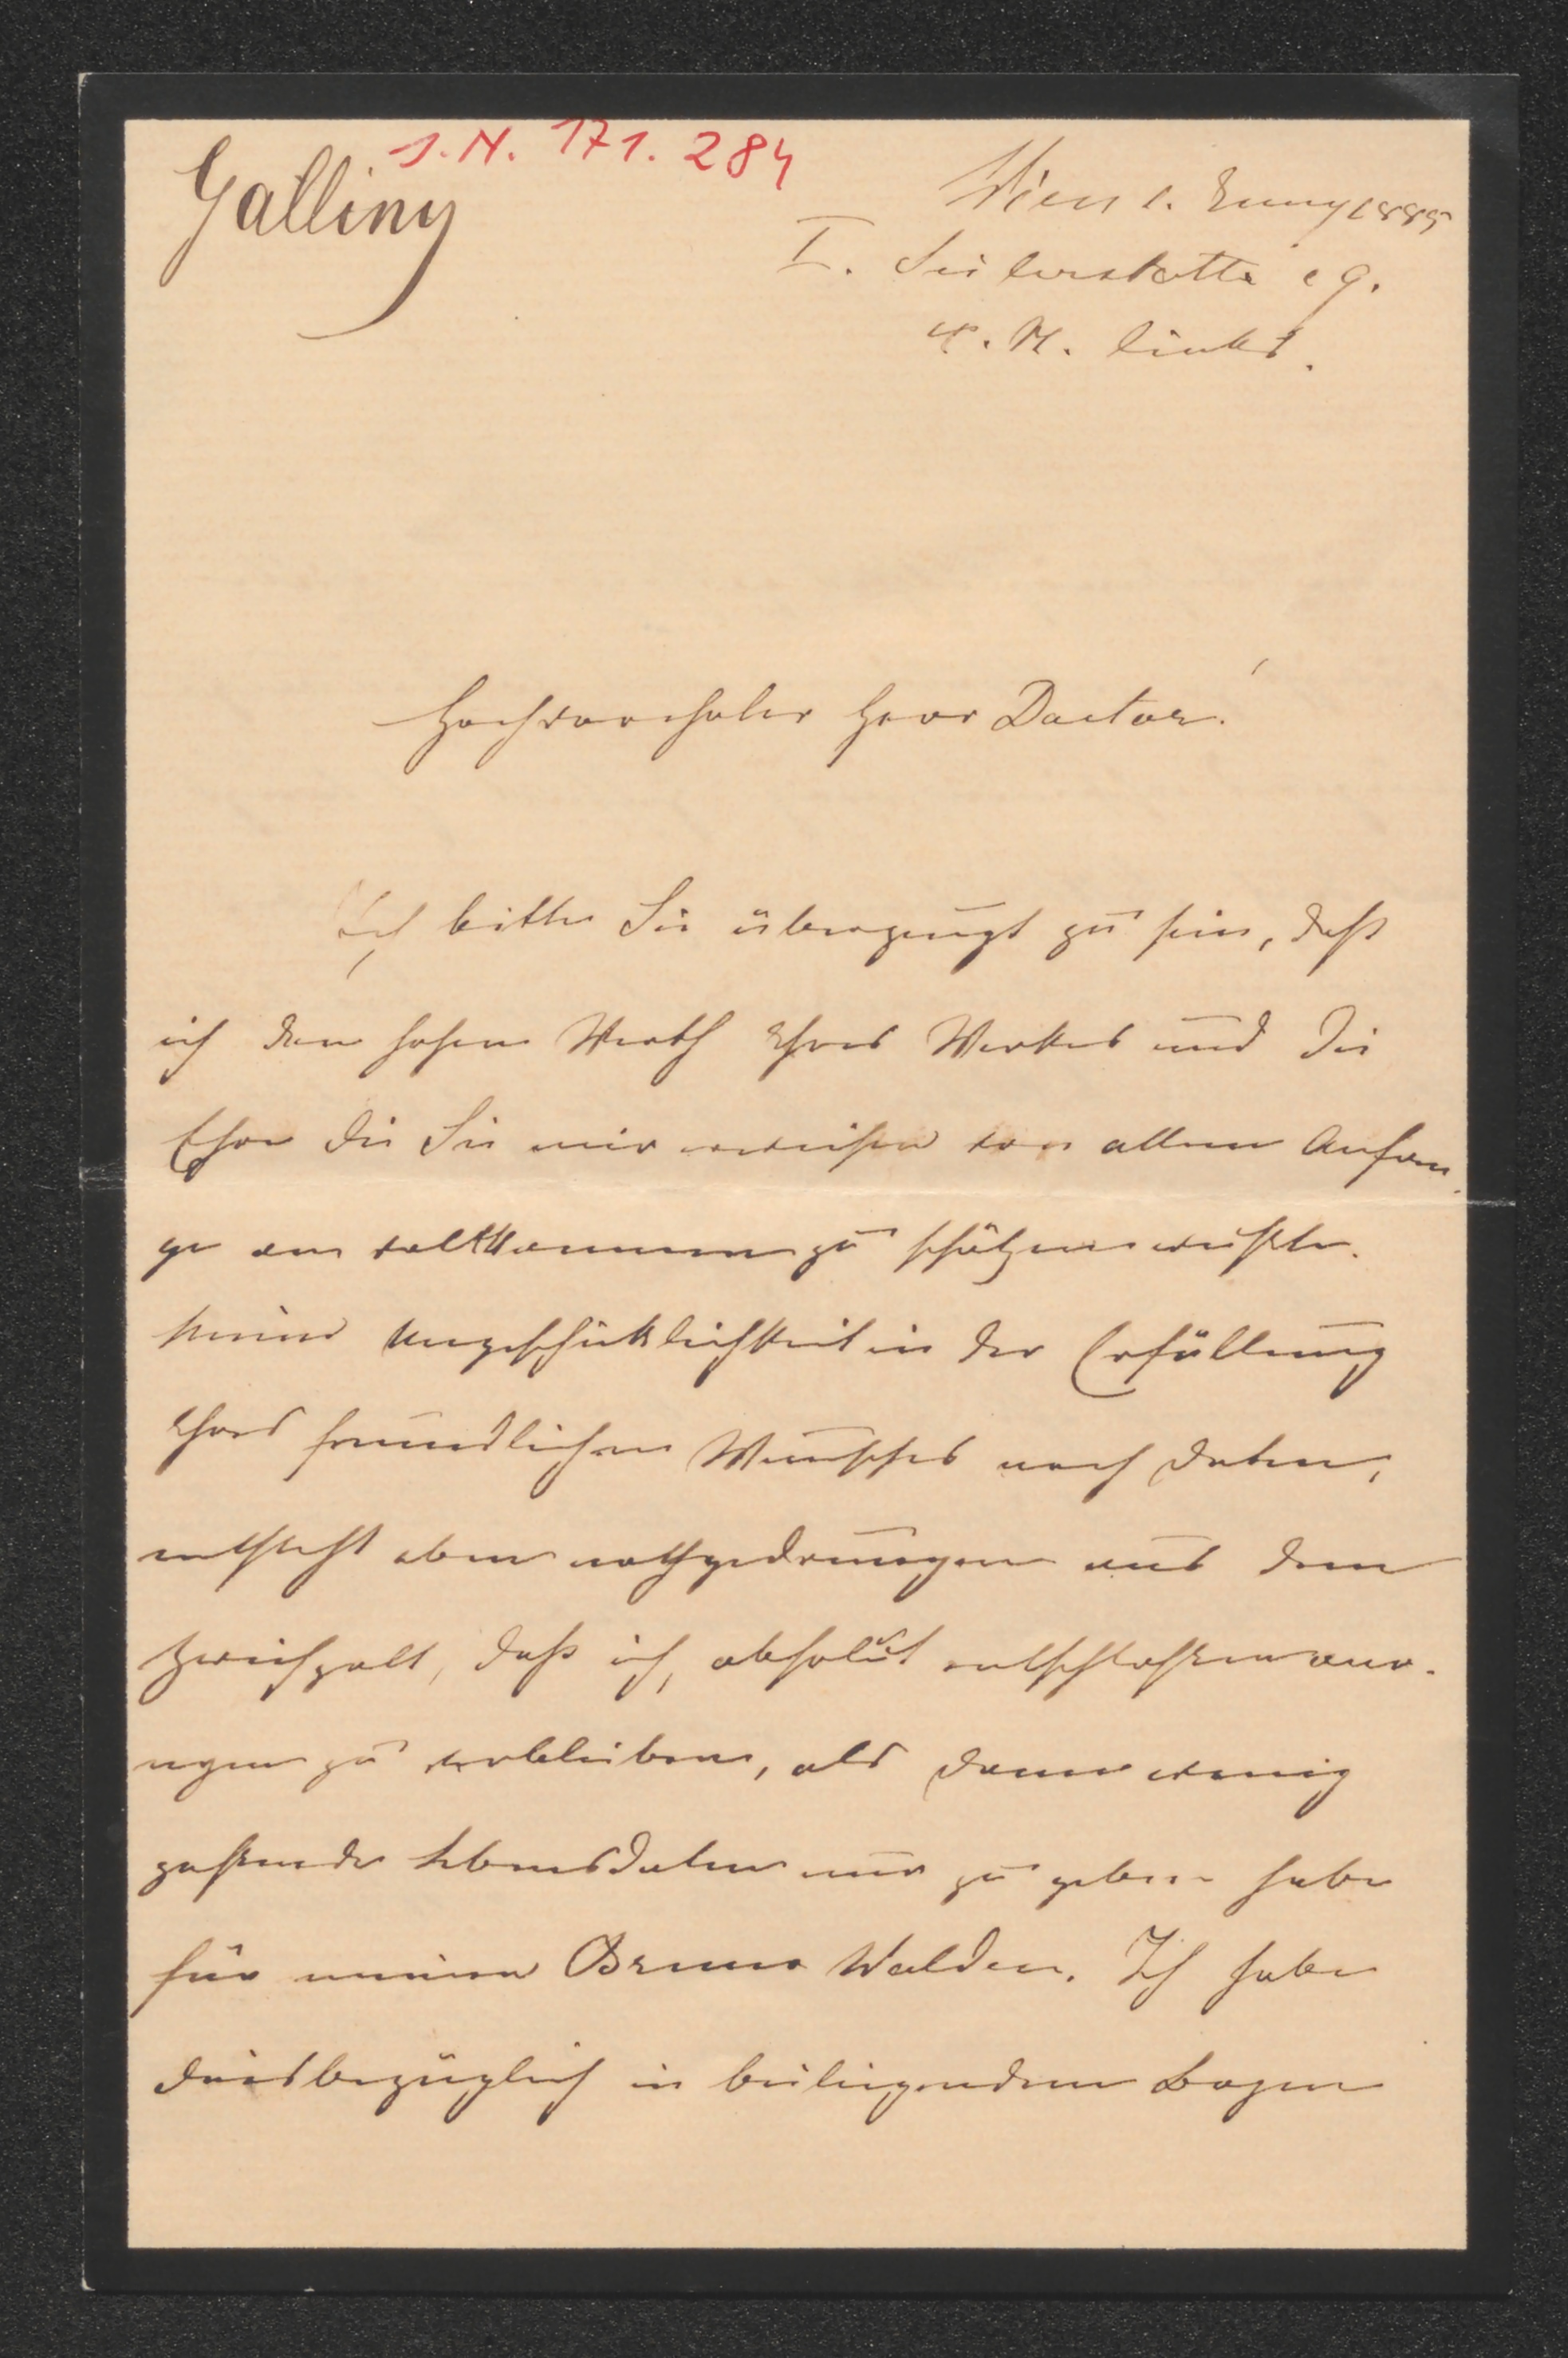 J.N. 171.284
Galliny
Wien 1. Juny 1885
I. Seilerstätte 19.
4. St. links.
Hochverehrter Herr Doctor!
Ich bitte Sie überzeugt zu sein, daß
ich den hohen Werth Ihres Werkes und die
Ehre die Sie mir erweisen von allem Anfan-
ge an vollkommen zu schätzen wußte.
Meine Ungeschicklichkeit in der Erfüllung
Ihres freundlichen Wunsches nach Daten,
entsteht eben nothgedrungen aus dem
Zwiespalt, daß ich, absolut entschlossen
zu verbleiben, als dann wenig
passende Lebensdaten nur zu geben habe
für meinen Bruno Walden. Ich habe
diesbezüglich in beiliegendem Bogen